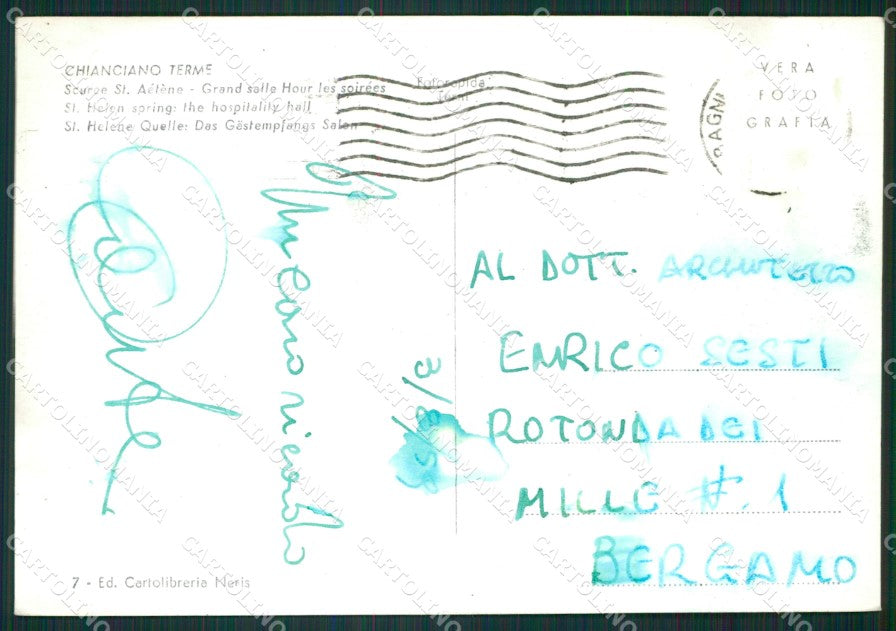 CHIANCIANO TERME
Source St. Aélène - Grand salle Hour les soirées
St. Helen spring: the hospitality hall
St. Helene Quelle: Das Gästempfangs Salon
Fotorapida
Terni
VERA
FOTO
GRAFIA
BAGNI
Un caro ricordo
3/8/58
AL DOTT. ARCHITETTO
ENRICO SESTI
ROTONDA DEI
MILLE #. 1
BERGAMO
7 - Ed. Cartolibreria Neris
CARTOLINOMANIA